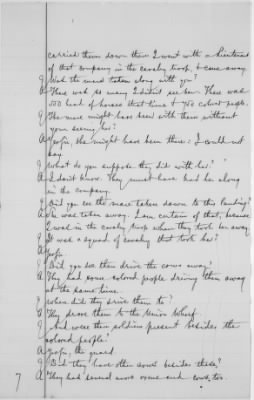 carried them down then I went with a Lieutenant
of that company in the cavalry troop, & come away.
Q Was the mare taken along with you?
A There was so many I didn't see her. There was
500 head of horses that time & 750 colored people.
Q The mare might have been with them without
your seeing her?
A Yes sir, she might have been there: I could not
say.
Q What do you suppose they did with her?
A I don't know. They must have had her along
in the company.
Q Did you see the mare taken down to this landing?
A She was taken away. I am certain of that, because
I was in the cavalry troop when they took her away.
Q It was a squad of cavalry that took her?
A Yes sir.
Q Did you see them drive the cows away?
A They had some colored people driving them away
at the same time.
Q Where did they drive them to?
A They drove them to the Union Wharf.
Q And were then soldiers present besides the
colored people?
A Yes sir, the guard.
Q Did they have other cows besides these?
A They had several more oxen and cows, too.
7